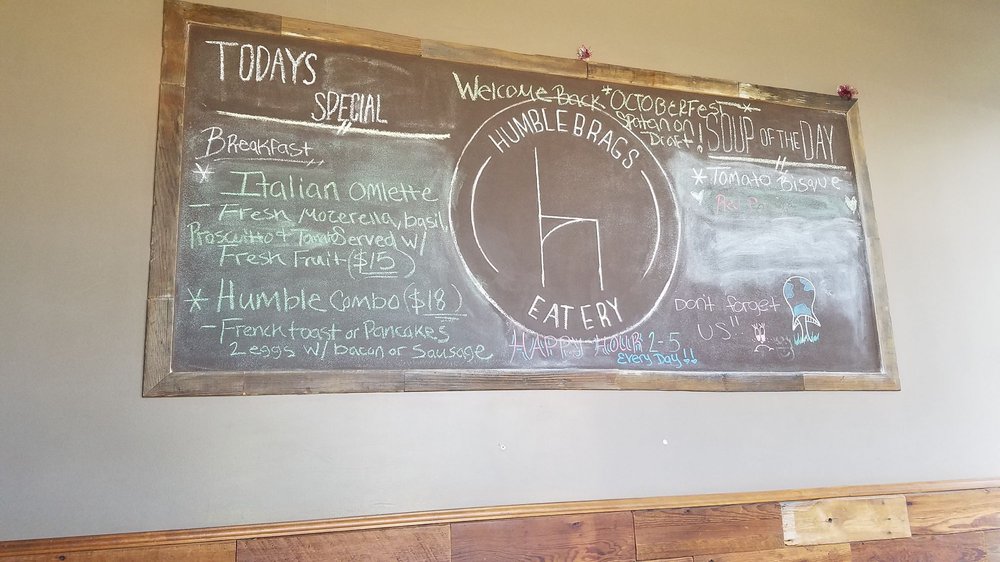 TODAYS
SPECIAL
Breakfast
* Italian omlette
- Fresh Mozerella, basil,
Proscuitto + Tamo Served w/
Fresh Fruit ($15)
* Humble Combo ($18)
- French toast or Pancakes
2 eggs w/ bacon or Sausage
Welcome Back * OCTOBERFEST *
Spatan on
Draft!
HUMBLE BRAGS
EATERY
HAPPY HOUR 2-5
Every Day!!
SOUP OF THE DAY
* Tomato Bisque
Red
Don't forget
US"